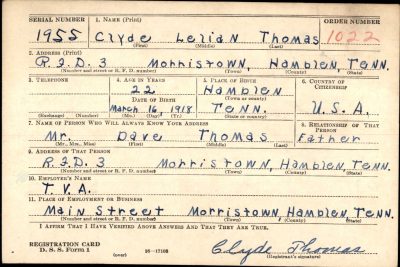 SERIAL NUMBER 1. NAME (Print) ORDER NUMBER
1955 Clyde Lerian Thomas 1022
(First) (Middle) (Last)
2. ADDRESS (Print)
R.F.D. 3 Morristown, Hamblen, Tenn.
(Number and street or R. F. D. number) (Town) (County) (State)
3. TELEPHONE 4. AGE IN YEARS 5. PLACE OF BIRTH 6. COUNTRY OF CITIZENSHIP
22 Hamblen
DATE OF BIRTH (Town or county)
March 16, 1918 Tenn. U.S.A.
(Exchange) (Number) (Mo.) (Day) (Yr.) (State or country)
7. NAME OF PERSON WHO WILL ALWAYS KNOW YOUR ADDRESS 8. RELATIONSHIP OF THAT PERSON
Mr. Dave Thomas Father
(Mr., Mrs., Miss) (First) (Middle) (Last)
9. ADDRESS OF THAT PERSON
R.F.D. 3 Morristown, Hamblen, Tenn.
(Number and street or R. F. D. number) (Town) (County) (State)
10. EMPLOYER'S NAME
T.V.A.
11. PLACE OF EMPLOYMENT OR BUSINESS
Main Street Morristown, Hamblen, Tenn.
(Number and street or R. F. D. number) (Town) (County) (State)
I AFFIRM THAT I HAVE VERIFIED ABOVE ANSWERS AND THAT THEY ARE TRUE.
REGISTRATION CARD
D. S. S. Form 1 16—17105 Clyde Thomas
(over) (Registrant's signature)